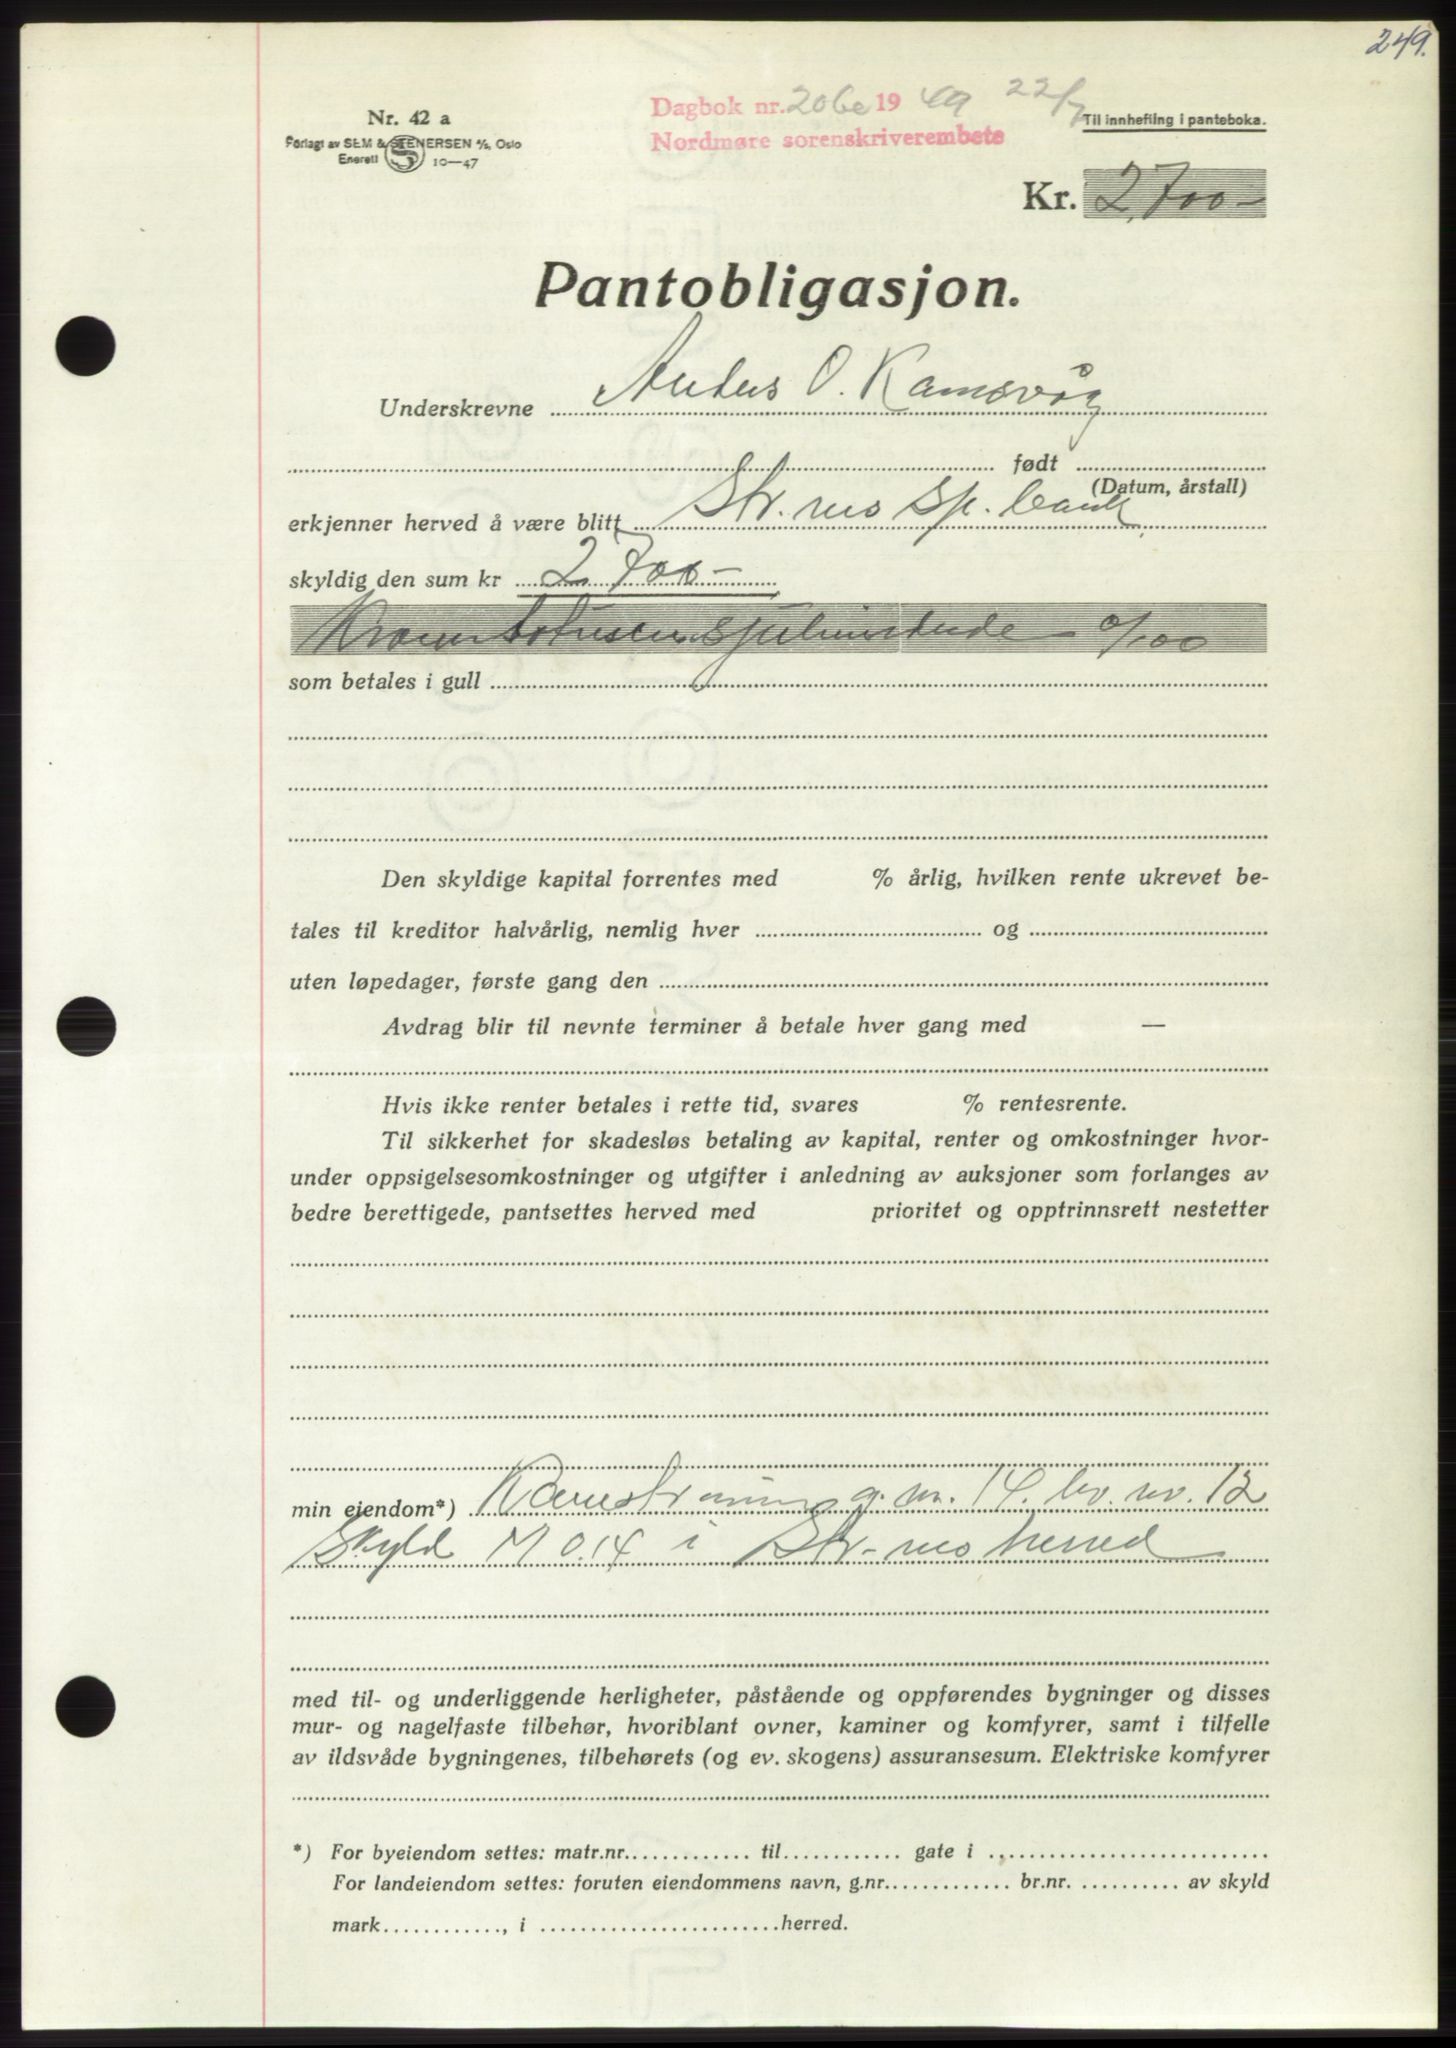 249.
Nr. 42 a
Forlagt av SEM & STENERSEN A/S, Oslo
Enerett 10—47
Dagbok nr. 2060 1949 22/7
Nordmøre sorenskriverembete
Til innhefting i panteboka.
Kr. 2700-
Pantobligasjon.
Underskrevne Anders O. Ramsvåg
født
(Datum, årstall)
erkjenner herved å være blitt Str. nes Sp. bank
skyldig den sum kr 2700-
Kroner totusensjuhundrede 0/100
som betales i gull
Den skyldige kapital forrentes med % årlig, hvilken rente ukrevet be-
tales til kreditor halvårlig, nemlig hver og
uten løpedager, første gang den
Avdrag blir til nevnte terminer å betale hver gang med —
Hvis ikke renter betales i rette tid, svares % rentesrente.
Til sikkerhet for skadesløs betaling av kapital, renter og omkostninger hvor-
under oppsigelsesomkostninger og utgifter i anledning av auksjoner som forlanges av
bedre berettigede, pantsettes herved med prioritet og opptrinnsrett nestetter
min eiendom*) g. nr. 14. br. nr. 12
Skyld M 0.14 i Str-nes herred
med til- og underliggende herligheter, påstående og oppførendes bygninger og disses
mur- og nagelfaste tilbehør, hvoriblant ovner, kaminer og komfyrer, samt i tilfelle
av ildsvåde bygningenes, tilbehørets (og ev. skogens) assuransesum. Elektriske komfyrer
*) For byeiendom settes: matr.nr. til gate i
For landeiendom settes: foruten eiendommens navn, g.nr. br.nr. av skyld
mark , i herred.